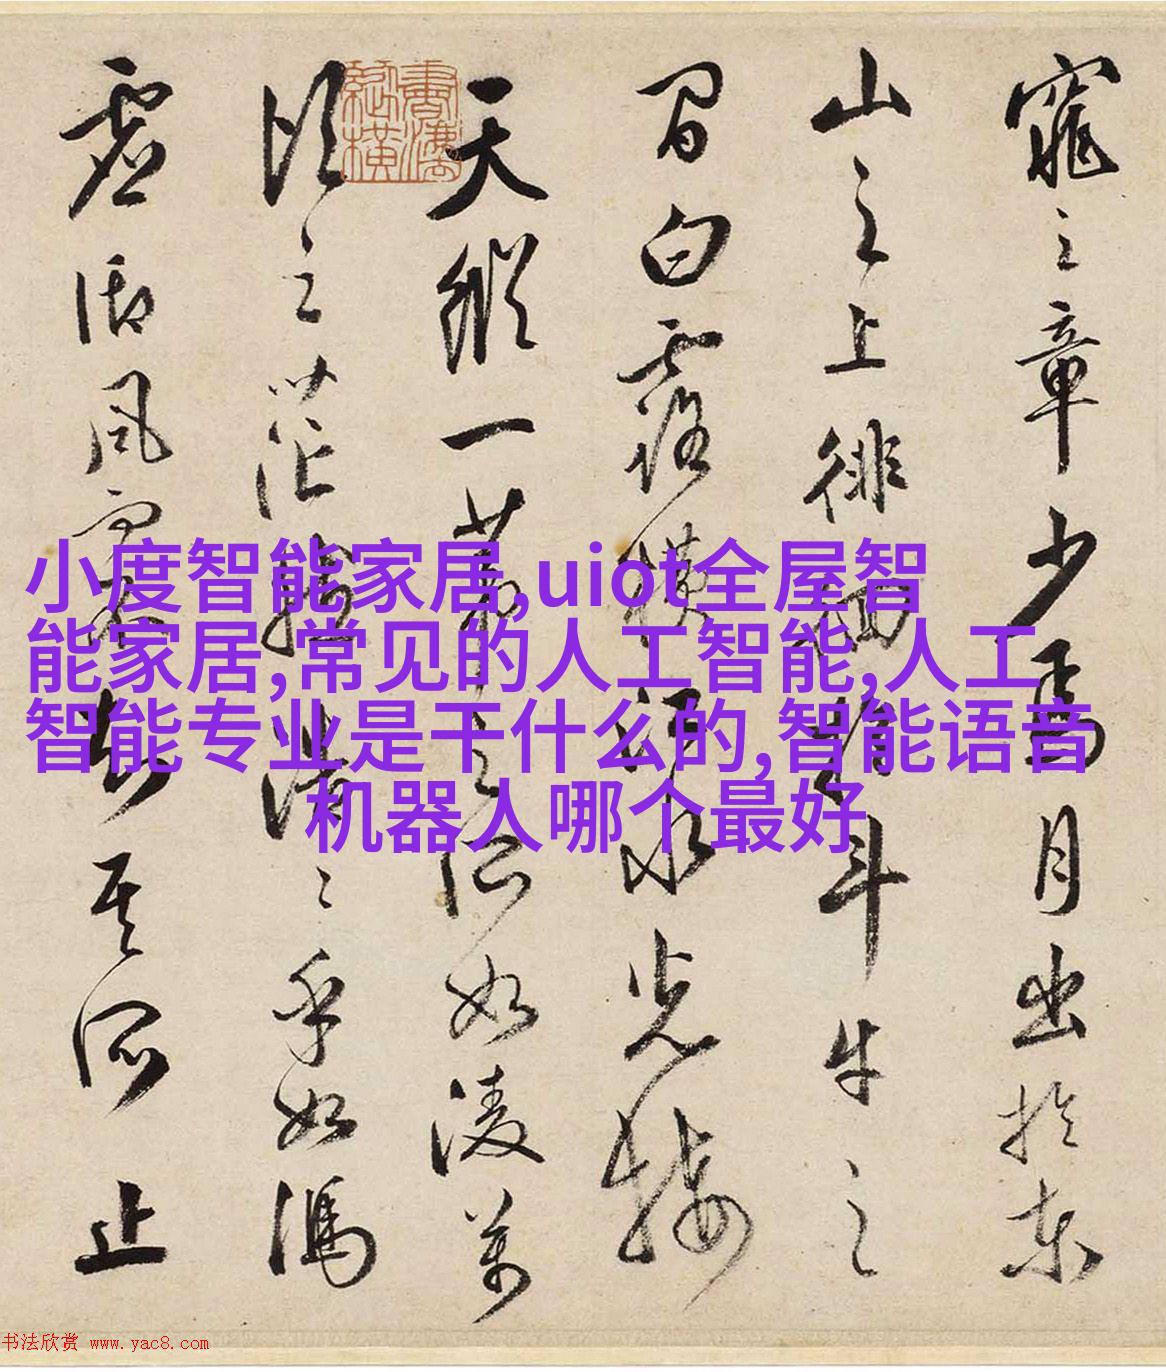 窕之章少焉月出於東
山之上徘徊於斗牛之
間白露橫江水光接
天縱一葦之所如凌萬
頃之茫然浩浩乎如馮
虛御風而不知其所止
小度智能家居,uiot全屋智
能家居,常见的人工智能,人工
智能专业是干什么的,智能语音
机器人哪个最好
书法欣赏 www.yac8.com